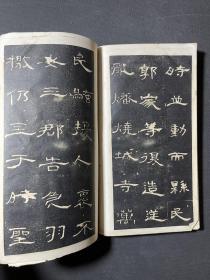 時並動而縣民
郭家等復造逆
亂燔燒城寺萬
民騷擾人褱不
安三郡告急羽
檄仍至于時聖